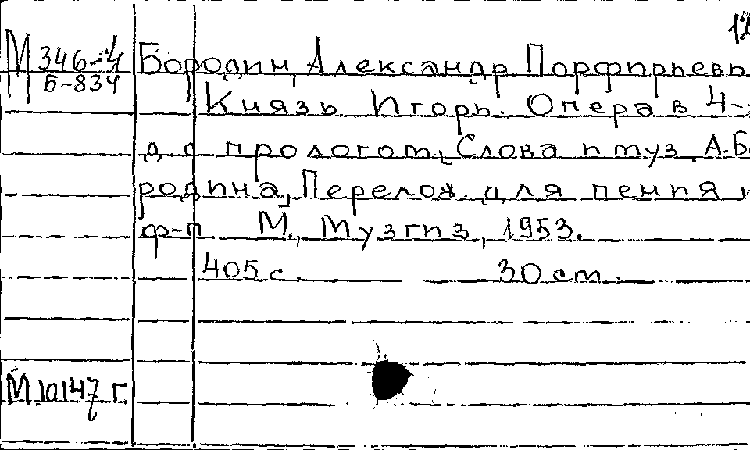 12
М 346-4 Бородин, Александр Порфирьеви
Б-834
Князь Игорь. Опера в 4-х
д. с прологом. Слова и муз. А. Бо
родина, Перелож. для пения и
ф-п М., Музгиз, 1953.
405 с. 30 см.
М 10147 г.